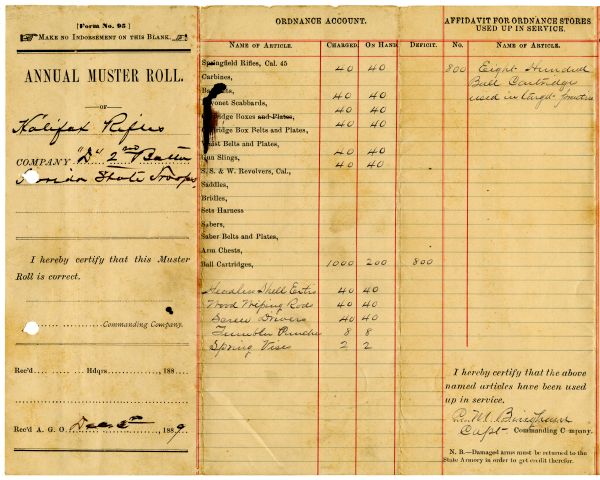 [Form No. 95]
MAKE NO INDORSEMENT ON THIS BLANK.
ANNUAL MUSTER ROLL.
OF
Halifax Rifles
COMPANY "D" 2nd Battn
Florida State Troops
I hereby certify that this Muster
Roll is correct.
Commanding Company.
Rec'd Hdqrs. 188
Rec'd A. G. O. 1889
ORDNANCE ACCOUNT.
NAME OF ARTICLE. CHARGED. ON HAND. DEFICIT.
Springfield Rifles, Cal. 45 40 40
Carbines,
Bayonets, 40 40
Bayonet Scabbards, 40 40
Cartridge Boxes and Plates, 40 40
Cartridge Box Belts and Plates,
Waist Belts and Plates, 40 40
Gun Slings, 40 40
S. S. & W. Revolvers, Cal.,
Saddles,
Bridles,
Sets Harness
Sabers,
Saber Belts and Plates,
Arm Chests,
Ball Cartridges, 1000 200 800
Headless Shell Extrs 40 40
Wood Wiping Rods 40 40
Screw Drivers 40 40
Tumbler Punches 8 8
Spring Vises 2 2
AFFIDAVIT FOR ORDNANCE STORES
USED UP IN SERVICE.
NO. NAME OF ARTICLE.
800 Eight Hundred
Ball Cartridges
used in target practice
I hereby certify that the above
named articles have been used
up in service.
M. Bingham
Capt Commanding Company.
N. B.—Damaged arms must be returned to the
State Armory in order to get credit therefor.